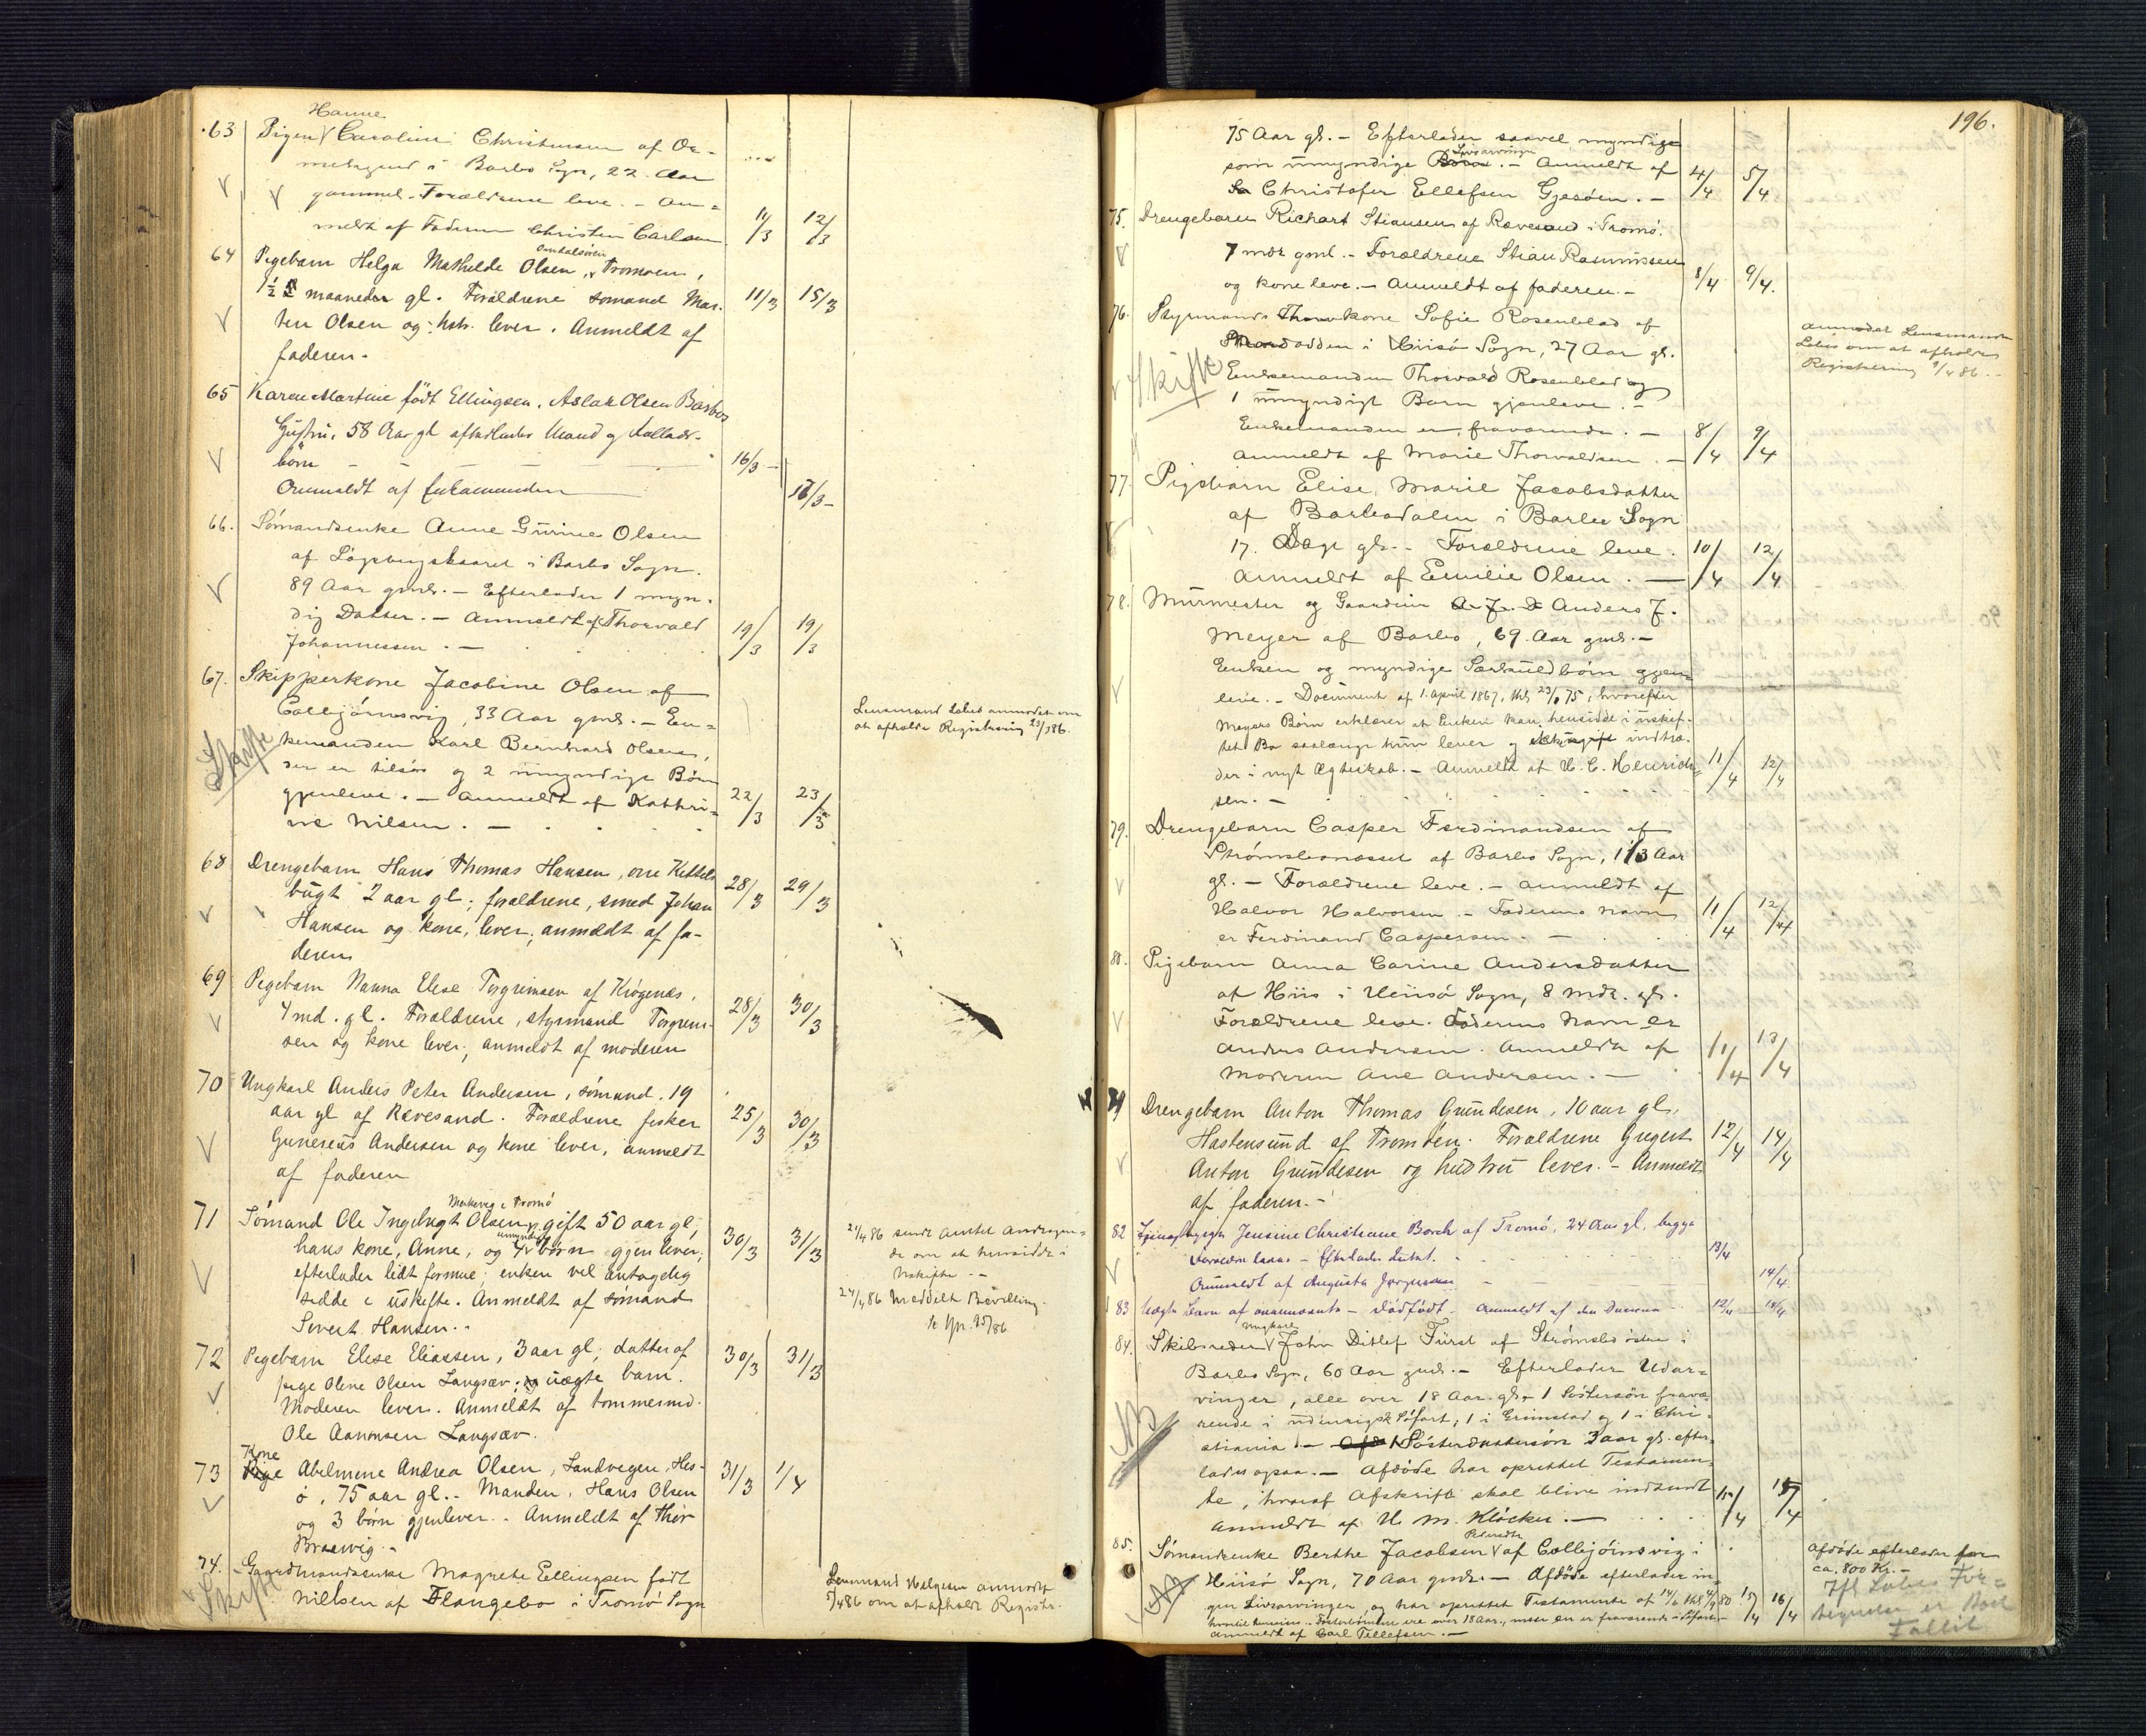 Hanne
63 Pigen Caroline Christensen af
i Barbo Sogn, 22 Aar
gammel. Forældrene leve. - An-
meldt af Faderen Christen Carlsen 11/3 12/3
64 Pigebarn Helga Mathilde Olsen, Tromøen,
1½ maaneder gl. Forældrene sømand Mar- 11/3 15/3
ten Olsen og hstr. lever. Anmeldt af
faderen.
65 Karen Martine født Ellingsen, Aslak Olsen Barbos
Hustru, 58 Aar gl efterlader Mand og
börn 16/3
Anmeldt af Enkemanden 17/3
66. Sömandsenke Anne Gurine Olsen
af i Barbo Sogn.
89 Aar gml. - Efterlader 1 myn-
dig Datter. - Anmeldt af Thorvald 19/3 19/3
Johannessen. -
67. Skipperkone Jacobine Olsen af
Colbjörnsvig, 33 Aar gml. - En-
kemanden Karl Bernhard Olsen,
der er tilsøs og 2 umyndige Børn
gjenleve. - Anmeldt af Kathri- 22/3 23/3
ne Nilsen. -
Skifte
Lensmand Løbes anmodet om
at afholde Registrering 23/3 86.
68 Drengebarn Hans Thomas Hansen, Kittels
bugt 2 aar gl; forældrene, smed Johan 28/3 29/3
Hansen og kone, lever, anmeldt af fa-
deren
69 Pigebarn Nanna Elise Torgrimsen af Krøgenes,
4 md. gl. Forældrene, styrmand Torgrim- 28/3 30/3
sen og kone lever; anmeldt af moderen
70 Ungkarl Anders Peter Andersen, sömand, 19
aar gl af Revesand. Forældrene fisker 25/3 30/3
Gunerius Andersen og kone lever, anmeldt
af faderen
Merkevig i Tromö
71 Sömand Ole Ingebregt Olsen, gift 50 aar gl,
umyndige
hans kone, Anne, og 4 börn gjenlever, 30/3 31/3
efterlader lidt formue; enken vil antagelig
sidde i uskifte. Anmeldt af sömand
Sivert Hansen.
21/4 86 sendt Amtet Andragen-
de om at hensidde i
Uskifte --
27/4 86 Meddelt Bevilling.
72 Pigebarn Elise Eliassen, 3 aar gl, datter af 30/3 31/3
pige Oline Olsen Langsæv; uægte barn.
Moderen lever. Anmeldt af tømmermd.
Ole Aanonsen Langsæv.
Kone
73 Abelmine Andrea Olsen, Landvegen, His-
ö, 75 aar gl. - Manden, Hans Olsen 31/3 1/4
og 3 börn gjenlever. - Anmeldt af Thor
Braavig. -
74. Gaardmandsenke Magrete Ellingsen født
Nilsen af Flangebo i Tromö Sogn
Skifte
Lensmand Helgesen anmodet
5/4 86 om at afholde Registr.
196.
75 Aar gl. - Efterlader saavel myndige
Livsarvinger
som umyndige Börn. - Anmeldt af 4/4 5/4
Christofer Ellefsen Gjesøen. -
75. Drengebarn Richart Stiansen af Rævesand i Tromö.
7 mdr gml. - Forældrene Stian Rasmussen
og kone leve. - Anmeldt af faderen. - 8/4 9/4.
76. Styrmands kone Sofie Rosenblad af
odden i Hiisö Sogn, 27 Aar gl.
Enkemanden Thorvald Rosenblad og
1 umyndigt Barn gjenleve. -
Enkemanden er fraværende. - 8/4 9/4
Anmeldt af Marie Thorvaldsen. -
Skifte
anmodet Lensmand
Løbes om at afholde
Registrering 9/4 86. -
77. Pigebarn Elise Marie Jacobsdatter
af Barbodalen i Barbo Sogn
17. Dage gl. - Forældrene leve. 10/4 12/4
Anmeldt af Emilie Olsen. -
78. Murmester og Gaardeier A. J. Anders J.
Meyer af Barbo, 69 Aar gml. -
Enken og myndige Særkuldbörn gjen-
leve. - Document af 1. April 1867, thl. 23/ 75, hvorefter
Meyers Börn erklærer at Enken kan hensidde i uskif-
tet Bo saalænge hun lever og indtræ-
der i nyt Ægteskab. - Anmeldt af H. C. Henrich- 11/4 12/4
sen. -
79. Drengebarn Casper Ferdinandsen af
Strömsbonesset af Barbo Sogn, 1 1/3 Aar
gl. - Forældrene leve. - Anmeldt af
Halvor Halvorsen. - Faderens Navn 11/4 12/4
er Ferdinand Caspersen. -
80. Pigebarn Anna Carine Andersdatter
af Hiis i Hiisö Sogn, 8 mdr. gl.
Forældrene leve. Faderens Navn er
Anders Andersen. Anmeldt af 11/4 13/4
Moderen Ane Andersen. -
81 Drengebarn Anton Thomas Gundesen, 10 aar gl,
Hastensund af Tromöen. Forældrene Gregert 12/4 14/4
Anton Gundesen og hustru lever. - Anmeldt
af faderen. -
82 Jensine Christiane Borch af Tromö, 24 Aar gl, begge
Forældre - Efterlader intet. 13/4
Anmeldt af Augusta Jørgensen 14/4
83 Uægte Barn af - dødfödt. Anmeldt af 12/4 14/4
Ungkarl
84. Skibsreder John Ditlef Fürst af Strömsbo östre i
Barbo Sogn, 60 Aar gml. - Efterlader Udar-
vinger, alle over 18 Aar. gl. - 1 Søstersön fravæ-
rende i udenrigsk Søfart, 1 i Grimstad og 1 i Chri-
stiania. - Søsterdattersön 3 aar gl. efter-
lades ogsaa. - Afdöde har oprettet Testamen-
te, hvoraf Afskrift skal blive indsendt 15/4 15/4
Anmeldt af H. M. Klöcker. -
85. Sömandsenke Berthe Jacobsen af Colbjörnsvig i
Hiisö Sogn, 70 Aar gml. - Afdöde efterlader in-
gen Livsarvinger og har oprettet Testamente af 14/6 thl 80 15/4 16/4
ere over 18 Aar, men en er fraværende i
Anmeldt af Carl Tellefsen. -
Afdöde efterlader
ca. 800 Kr. -
Ifl Løbes For-
er
Fallit